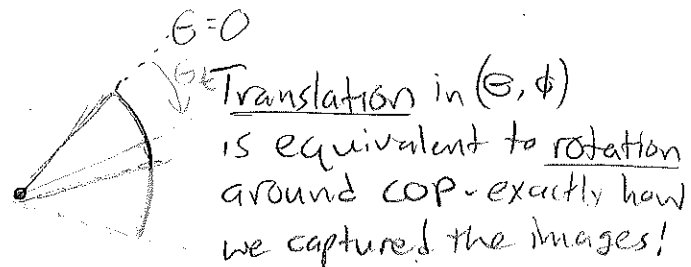 Θ=0
Θ
Translation in (Θ, φ)
is equivalent to rotation
around COP - exactly how
we captured the images!